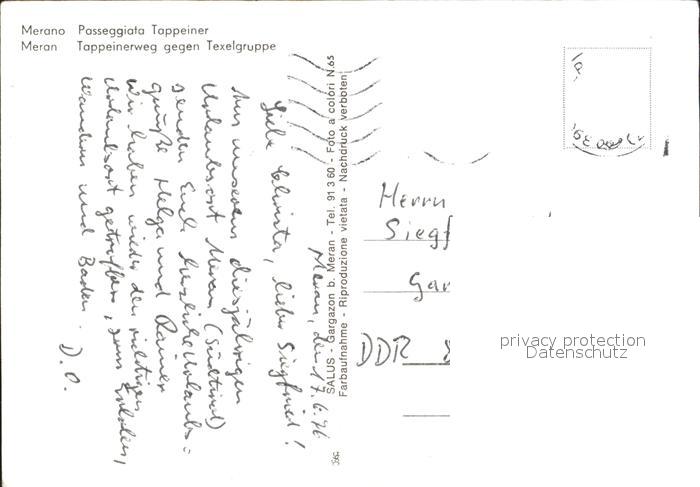 Merano Passeggiata Tappeiner
Meran Tappeinerweg gegen Texelgruppe
Meran, den 17.6.76
Liebe Christa, lieber Siegfried!
Aus unserem diesjährigen
Urlaubsort Meran (Südtirol)
senden Euch herzliche Urlaubs-
grüße Helga und Rainer
Wir haben wieder den richtigen
Urlaubsort getroffen, zum Erholen,
Wandern und Baden. D. O.
SALUS - Gargazon b. Meran - Tel. 91 3 60 - Foto a colori N.65
Farbaufnahme - Riproduzione vietata - Nachdruck verboten
Herrn
Siegf
Gar
DDR
privacy protection
Datenschutz